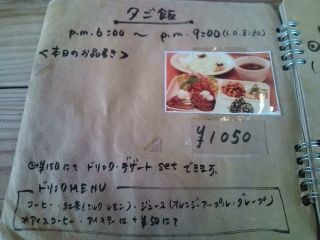 夕ご飯
p.m.6:00 〜 p.m.9:00(L.O.8:30)
<本日のお品書き>
¥1050
⊕¥150にて ドリンク・デザート set できます。
ドリンクMENU
コーヒー・紅茶(ミルク レモン)・ジュース(オレンジ・アップル・グレープ)
※アイスコーヒー・アイスティは + ¥50にて